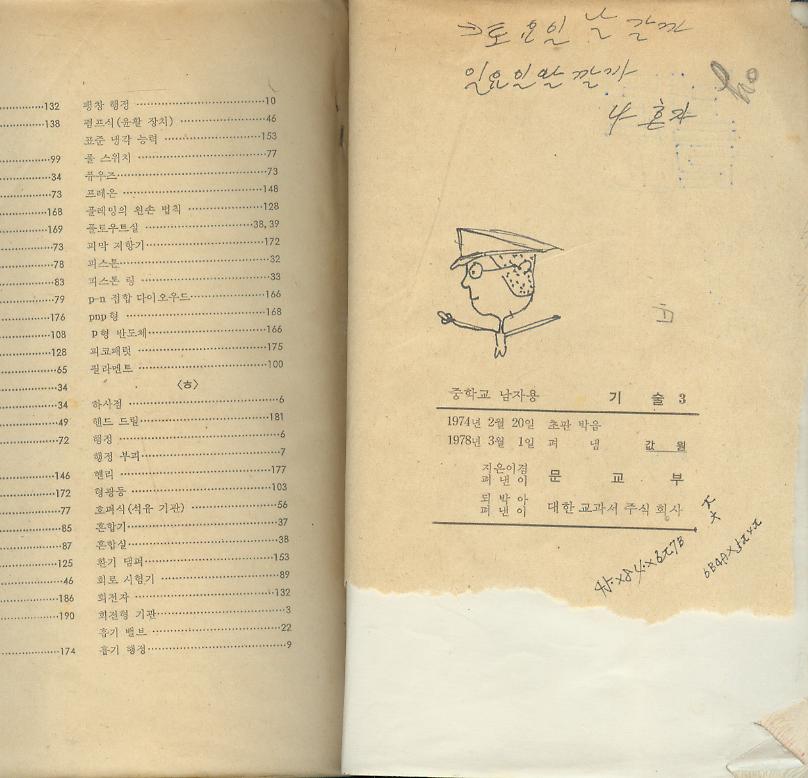 132 팽창 행정 10
138 펌프식(윤활 장치) 46
표준 냉각 능력 153
99 풀 스위치 77
34 퓨우즈 73
73 프레온 148
168 플레밍의 왼손 법칙 128
169 플로우트실 38, 39
73 피막 저항기 172
78 피스톤 32
83 피스톤 링 33
79 p-n 접합 다이오우드 166
176 pnp형 168
108 p형 반도체 166
128 피코패럿 175
65 필라멘트 100
34 〈ㅎ〉
34 하사점 6
49 핸드 드릴 181
72 행정 6
행정 부피 7
146 헨리 177
172 형광등 103
77 호퍼식(석유 기관) 56
85 혼합기 37
87 혼합실 38
125 환기 댐퍼 153
46 회로 시험기 89
186 회전자 132
190 회전형 기관 3
흡기 밸브 22
174 흡기 행정 9
토요일 날 갈까
일요일 날 갈까
나 혼자
중학교 남자용 기 술 3
1974년 2월 20일 초판 박음
1978년 3월 1일 펴 냄 값 원
지은이겸
펴 낸 이 문 교 부
되 박 아
펴 낸 이 대한 교과서 주식 회사